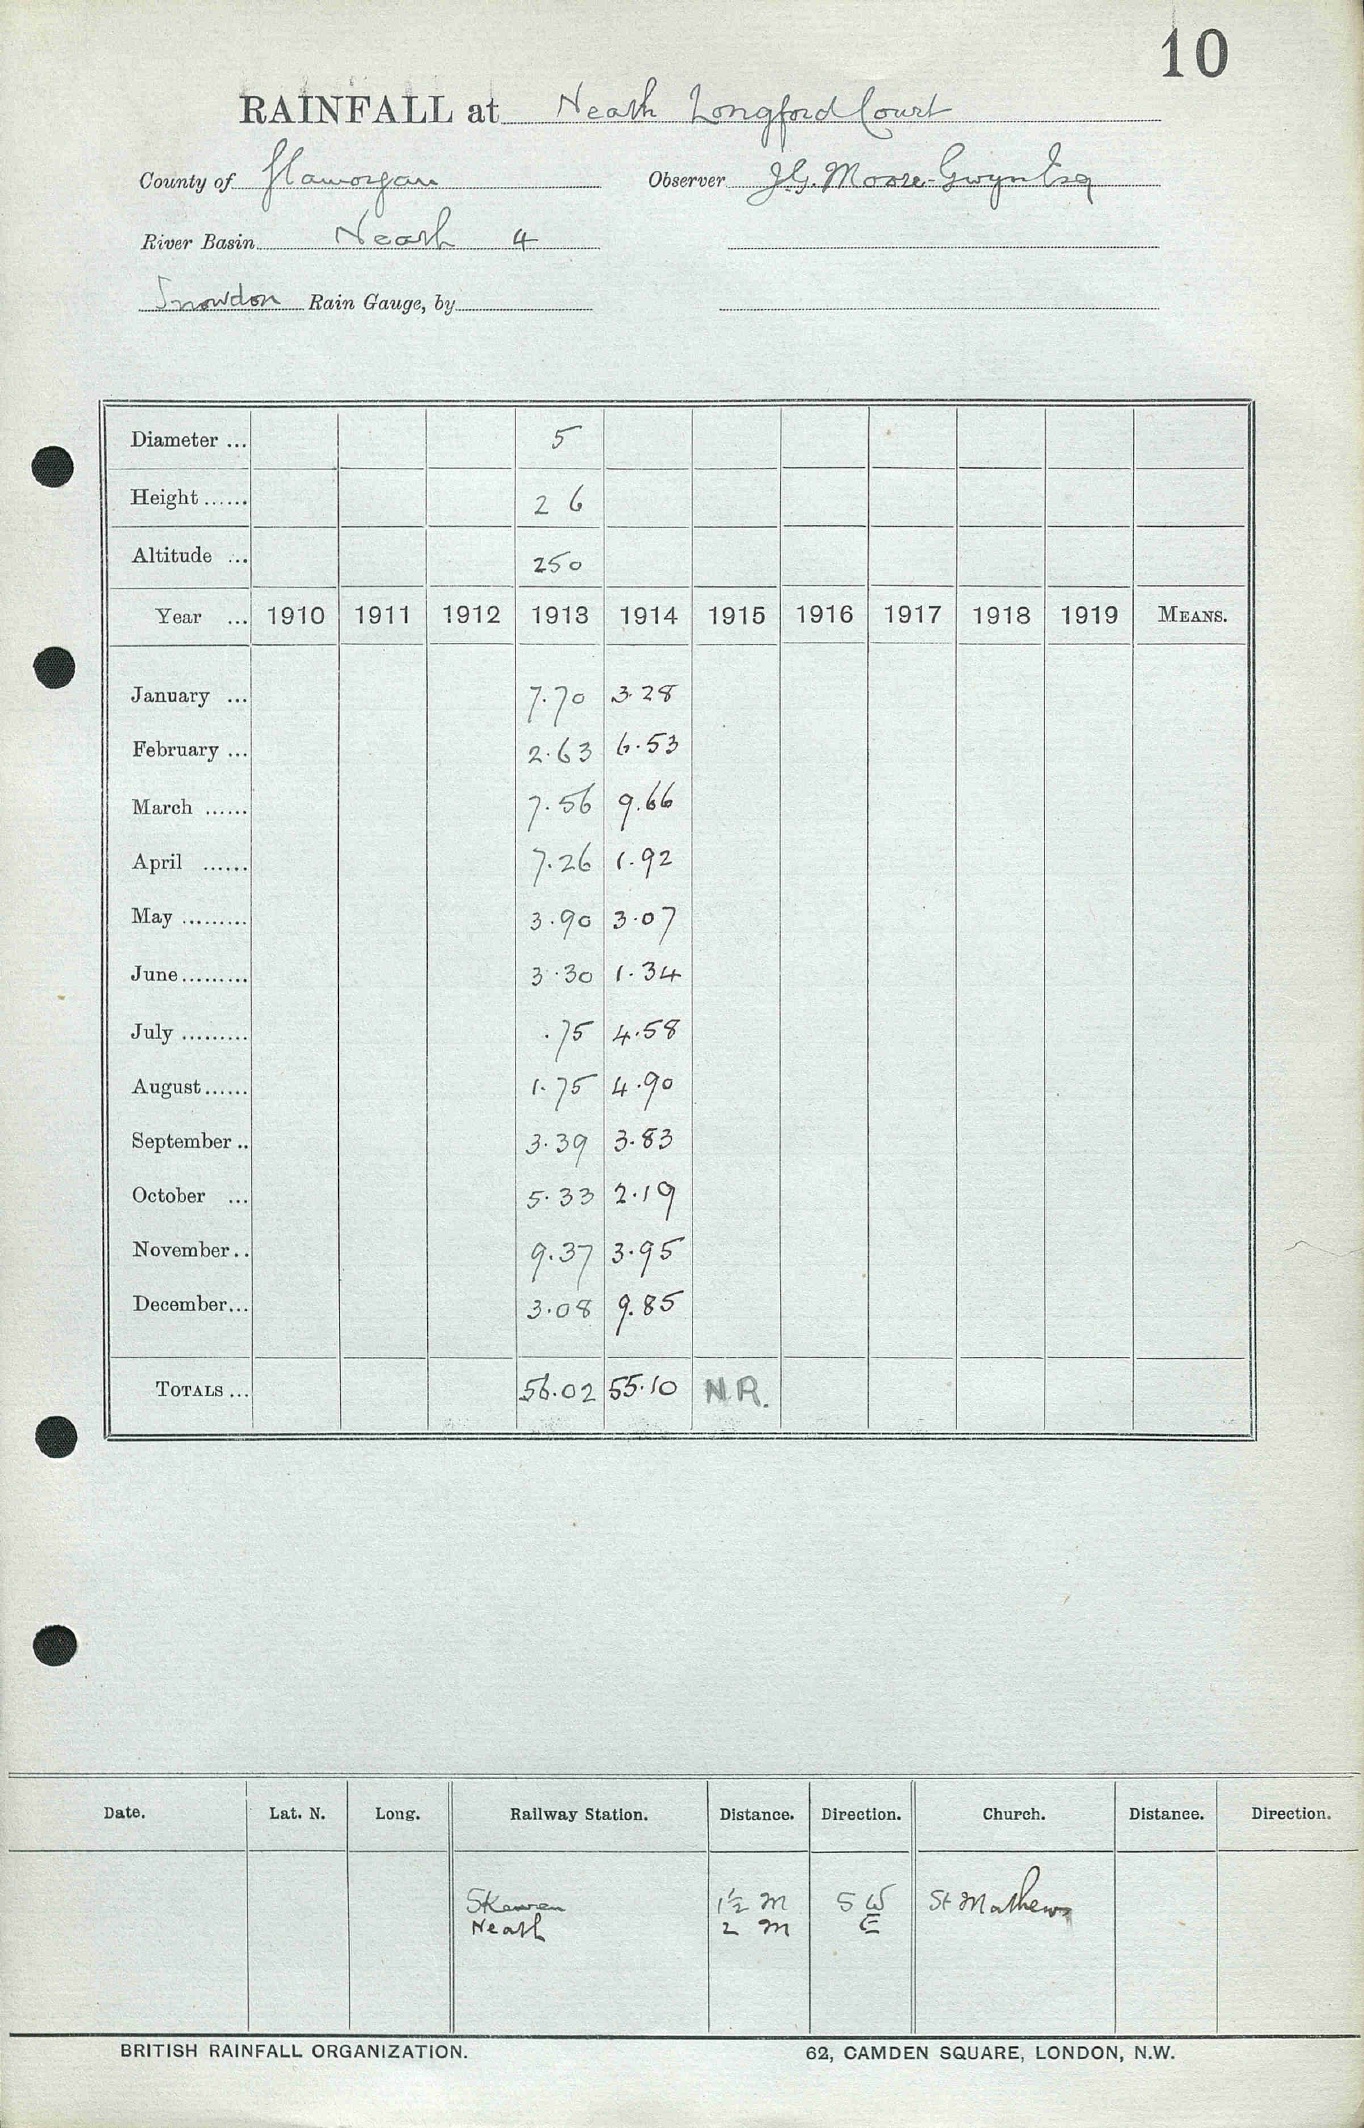 10
RAINFALL at Neath Longford Court
County of Glamorgan Observer J.G. Moore-Gwyn Esq
River Basin Neath 4
Snowdon Rain Gauge, by
Diameter ... 5
Height ...... 2 6
Altitude ... 250
Year ... 1910 1911 1912 1913 1914 1915 1916 1917 1918 1919 MEANS.
January ... 7.70 3.28
February ... 2.63 6.53
March ...... 7.56 9.66
April ...... 7.26 1.92
May ......... 3.90 3.07
June ......... 3.30 1.34
July ......... .75 4.58
August ...... 1.75 4.90
September .. 3.39 3.83
October ... 5.33 2.19
November .. 9.37 3.95
December ... 3.08 9.85
TOTALS ... 56.02 55.10 N.R.
Date. Lat. N. Long. Railway Station. Distance. Direction. Church. Distance. Direction.
Skewen 1½ M S W St Mathews
Neath 2 M E
BRITISH RAINFALL ORGANIZATION. 62, CAMDEN SQUARE, LONDON, N.W.